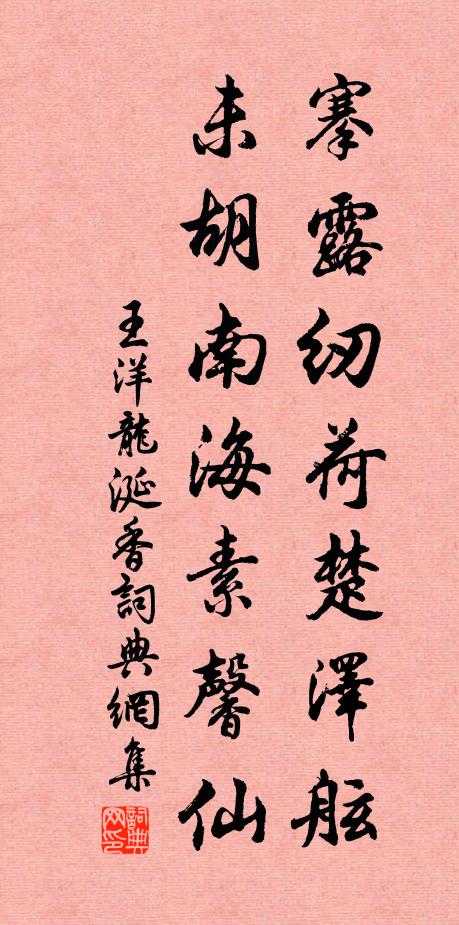 搴露紉荷楚澤舷
未胡南海素馨仙
王洋龍涎香詞典網集
詞典網印